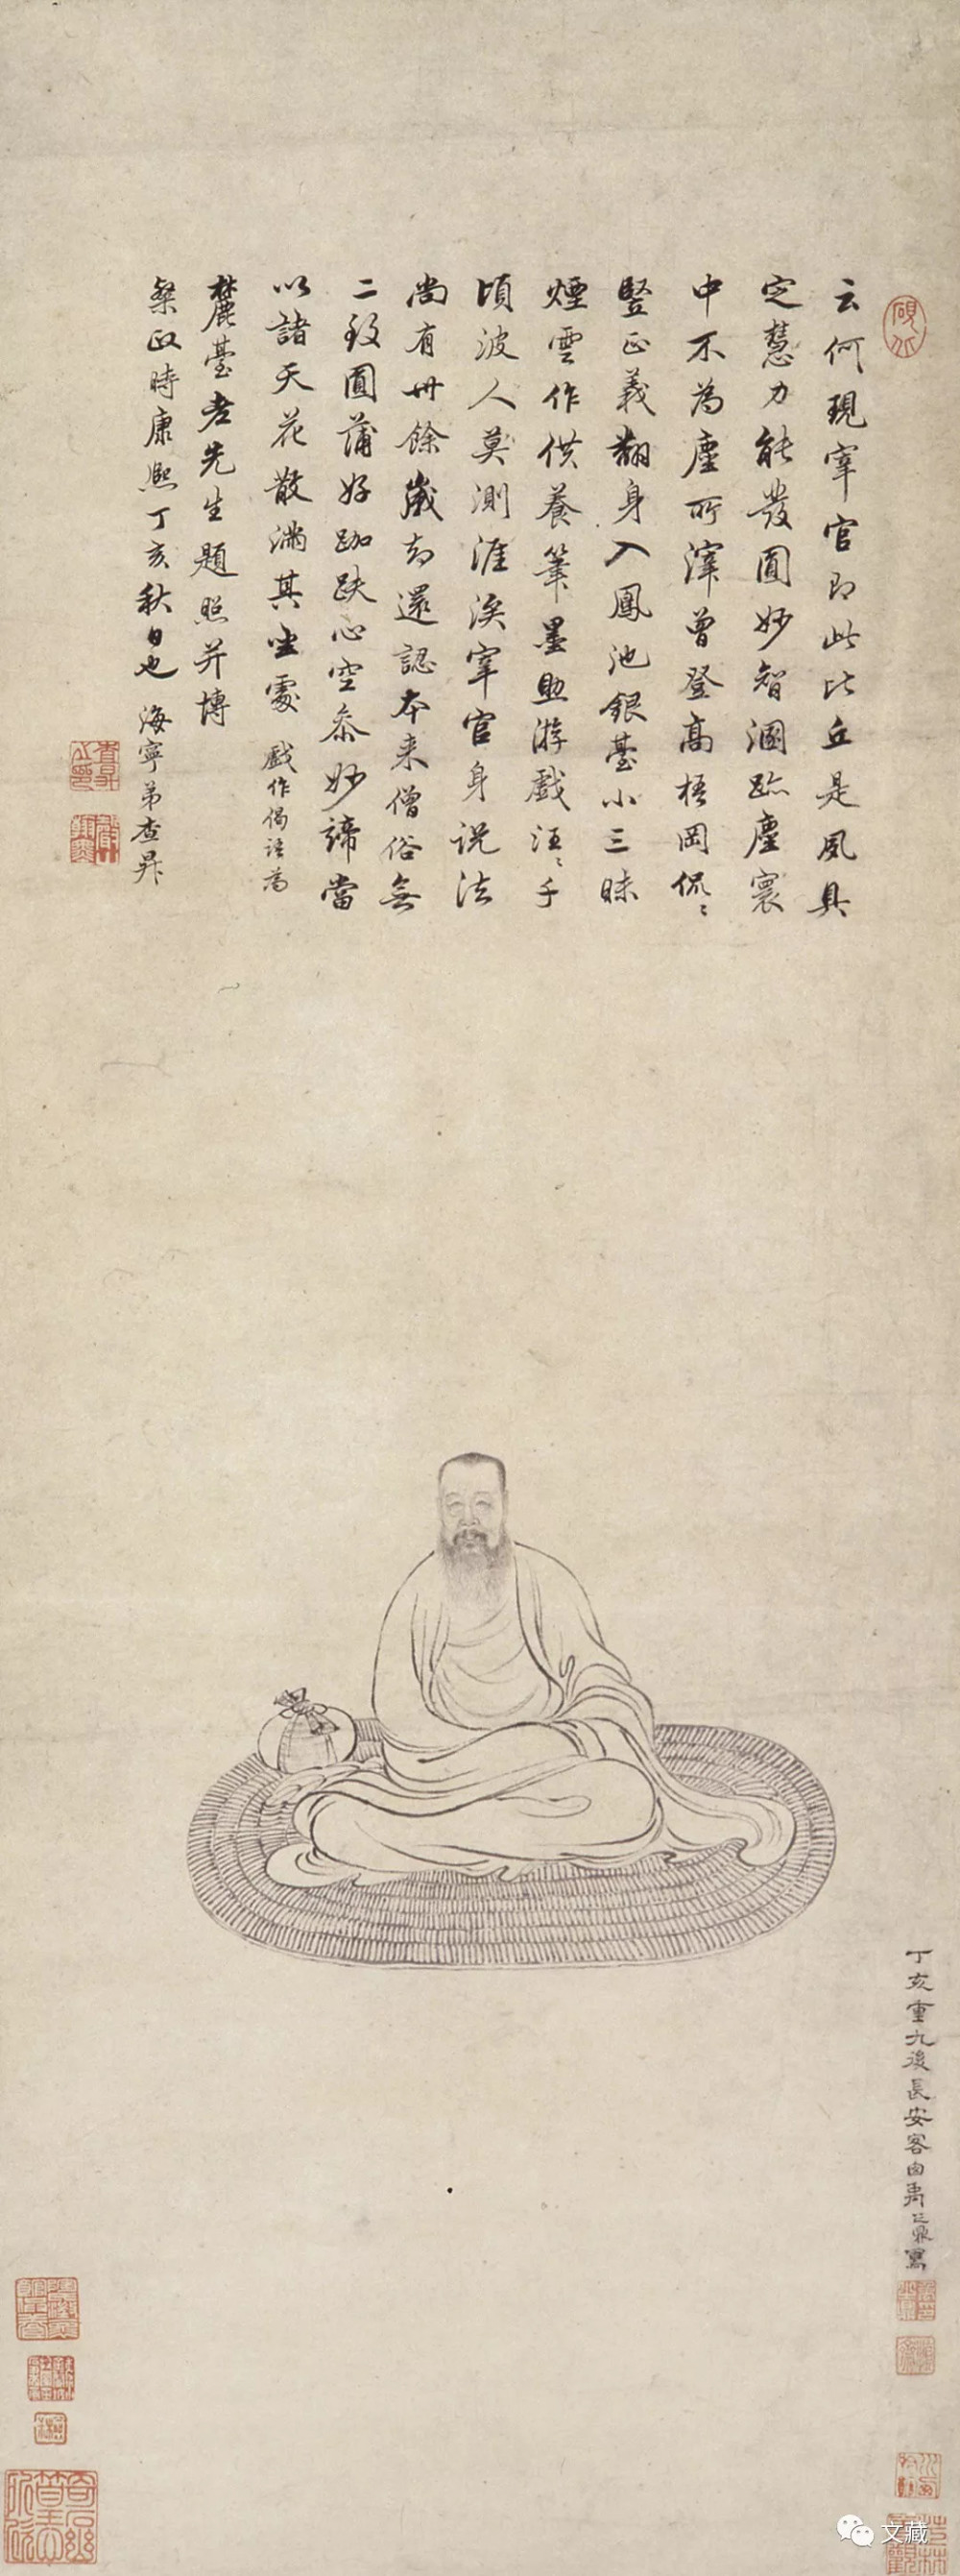 云何現宰官即此比丘是夙具
定慧力能發圓妙智溷跡塵寰
中不為塵所滓曾登高梧岡侃〻
豎正義翻身入鳳池銀臺小三昧
煙雲作供養筆墨興游戲汪〻千
頃波人莫測涯涘宰官身說法
尚有卅餘歲却還認本来僧俗無
二致圓蒲好跏趺心空叅妙諦當
以諸天花散滿其坐處 戲作偈語為
麓臺老先生題照并博
粲政時康熙丁亥秋日也 海寧弟查昇
丁亥重九後長安客由禹之鼎寫
文藏